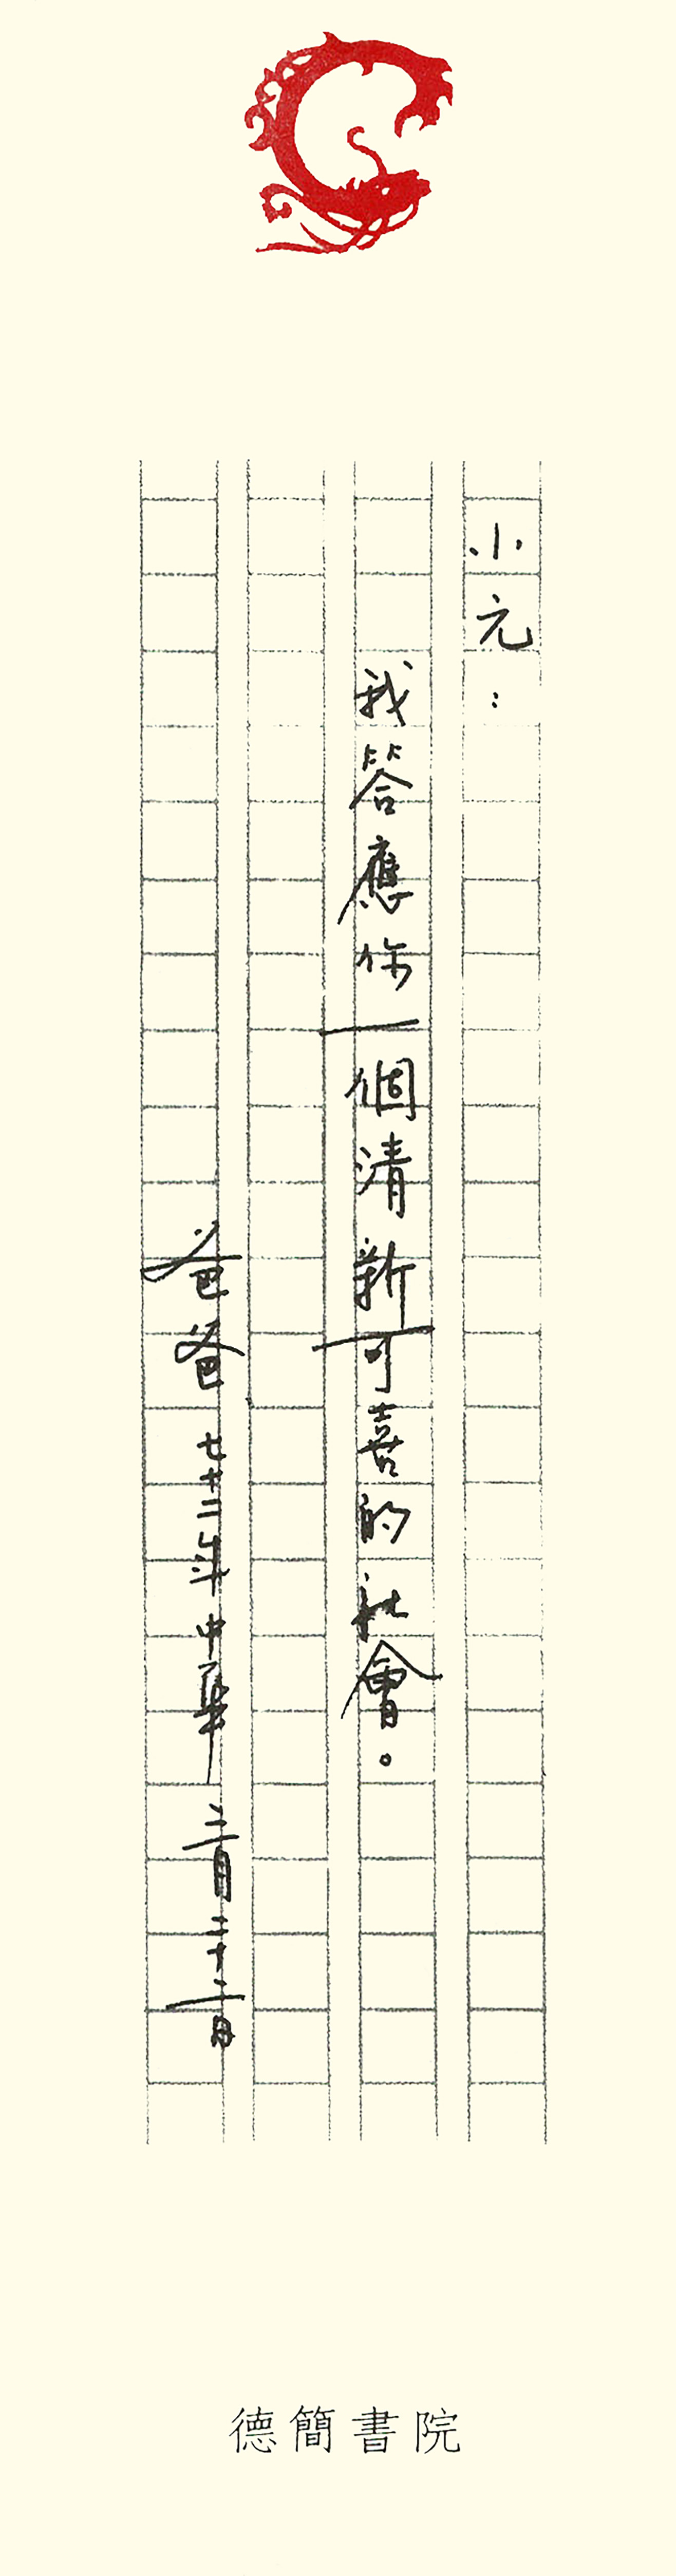 小元：
我答應你一個清新可喜的社會。
爸爸 七十二年中華 二月二十二日
德簡書院